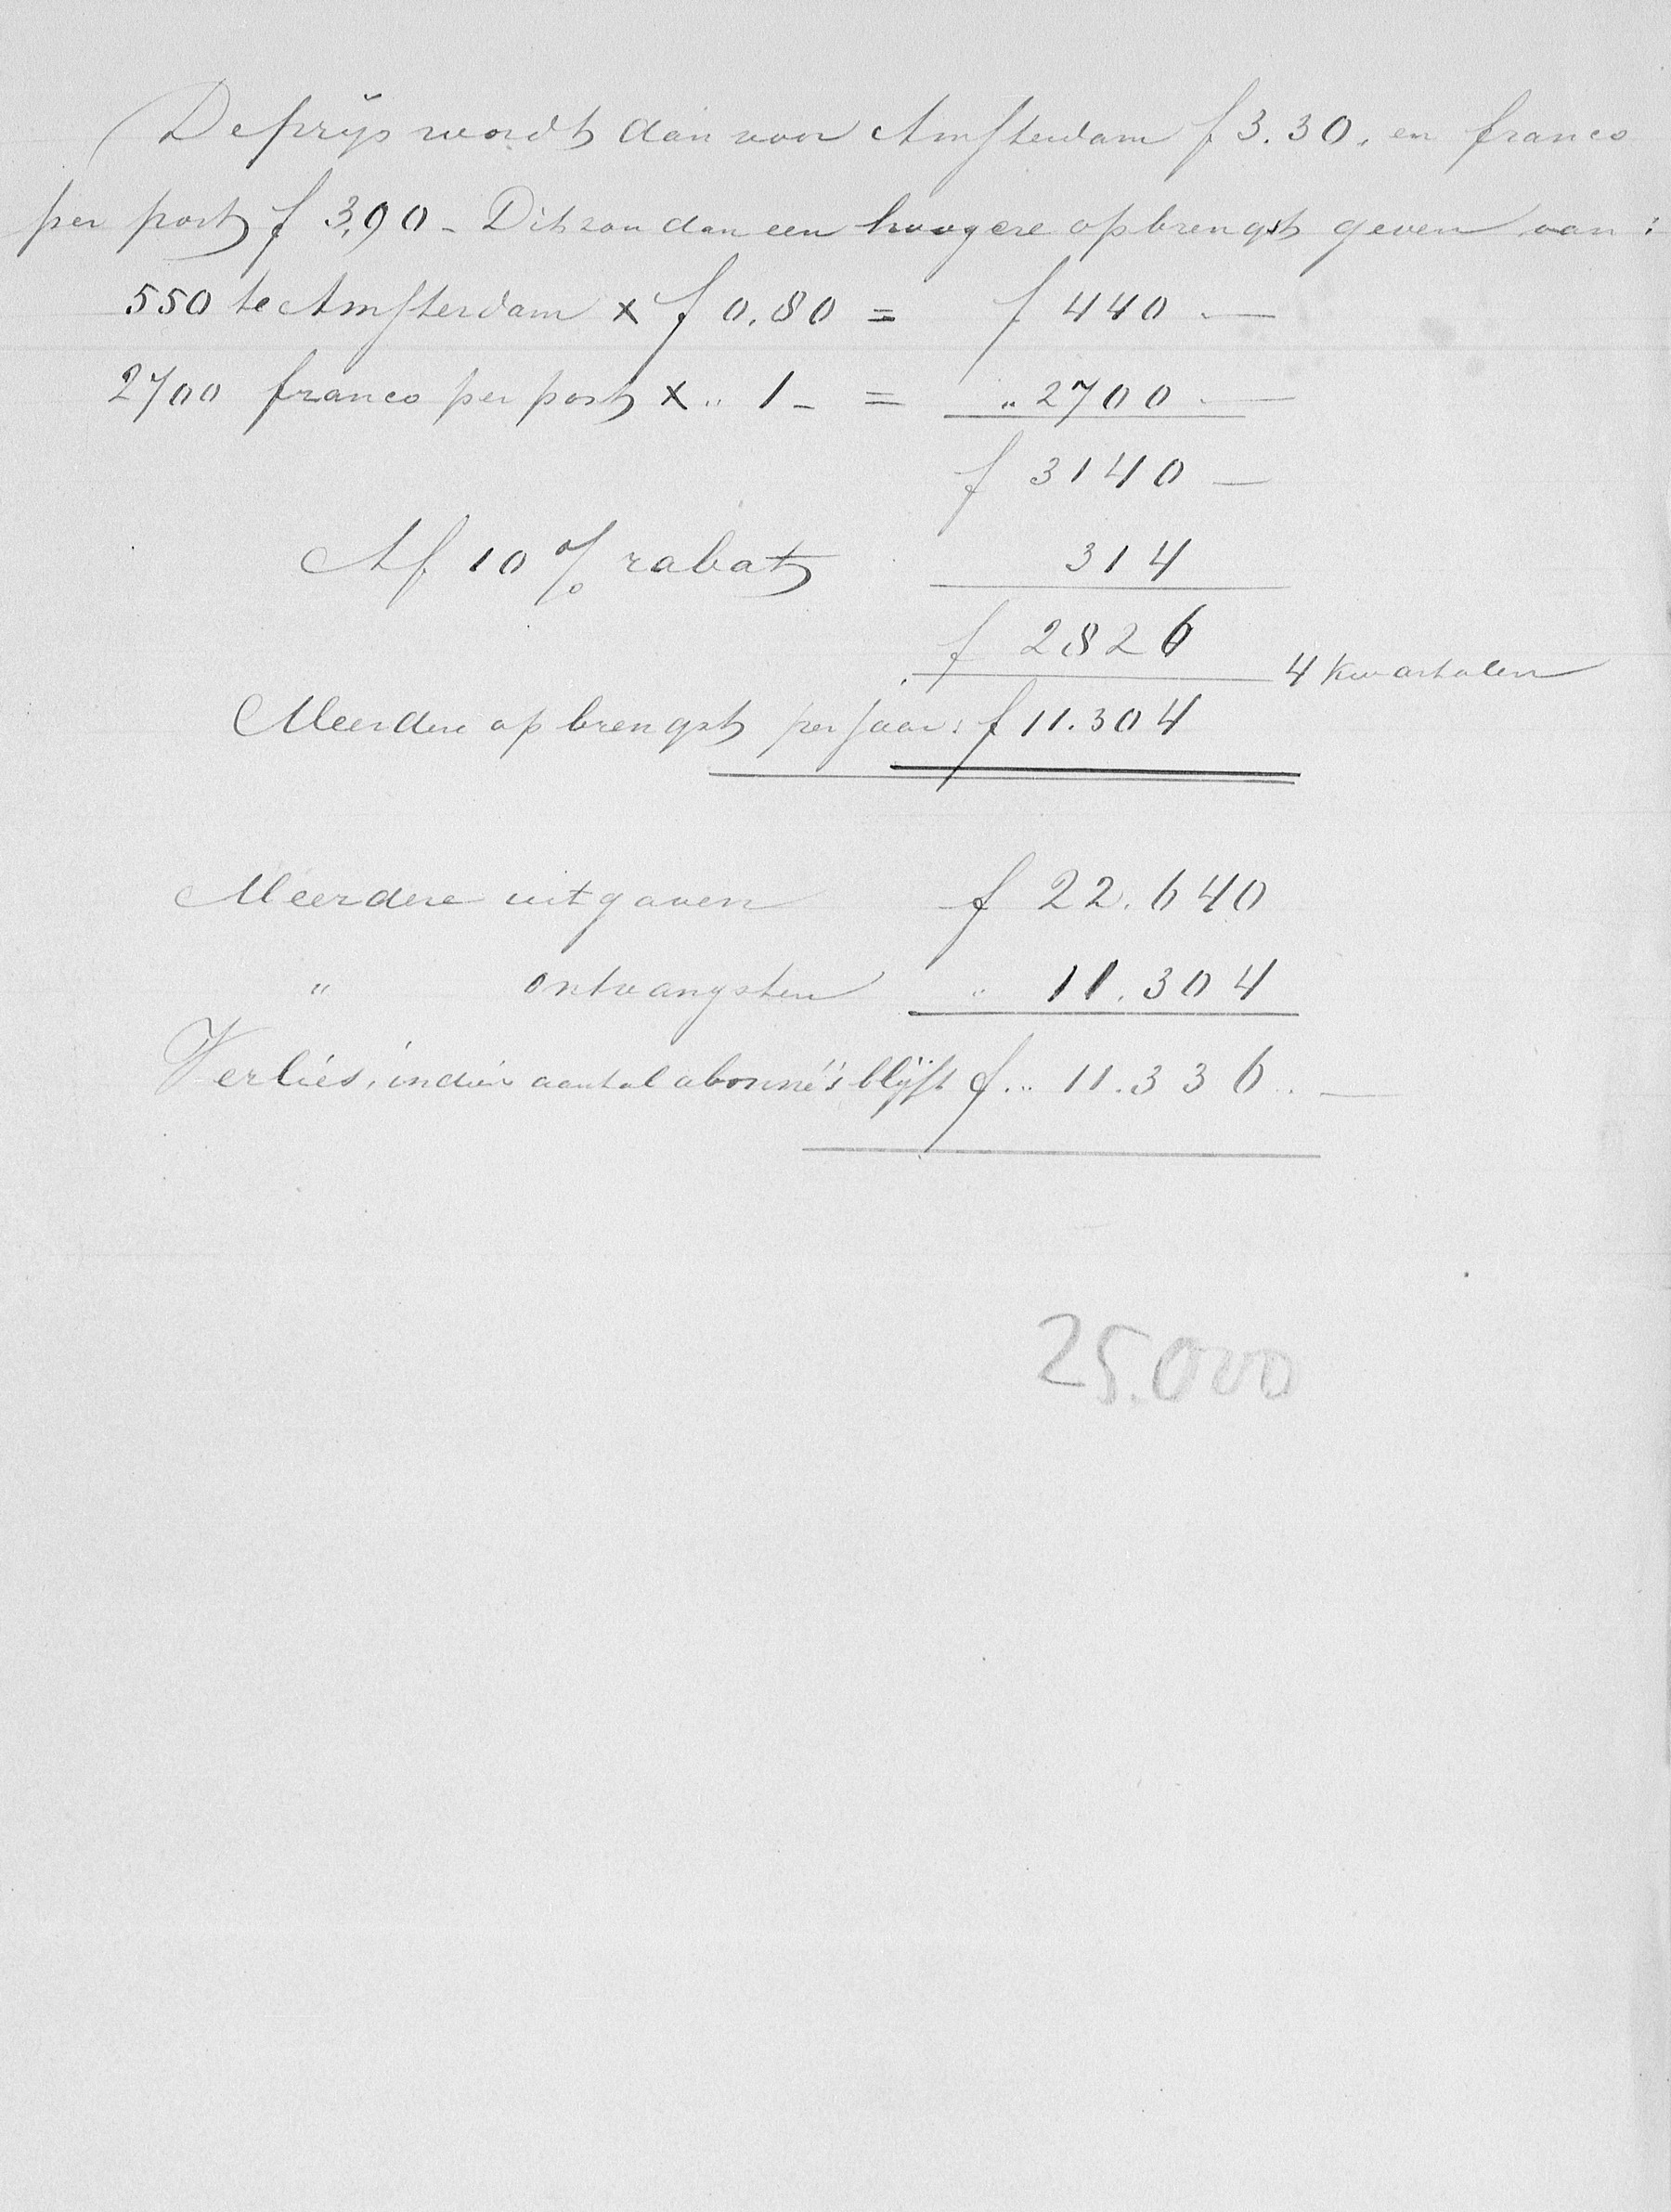 De prijs wordt dan voor Amsterdam f 3.30. en franco
per post f 3,90 - Dit zou dan een hoogere opbrengst geven van:
550 te Amsterdam x f 0.80 = f 440 —
2700 franco per post x „ 1 - = „ 2700 —
f 3140 —
Af 10 % rabat 314
f 2826
4 kwartalen
Meerdere opbrengst per jaar: f 11.304
Meerdere uitgaven f 22.640
„ ontvangsten „ 11.304
Verlies, indien aantal abonné's blijft f „ 11.336. —
25.000